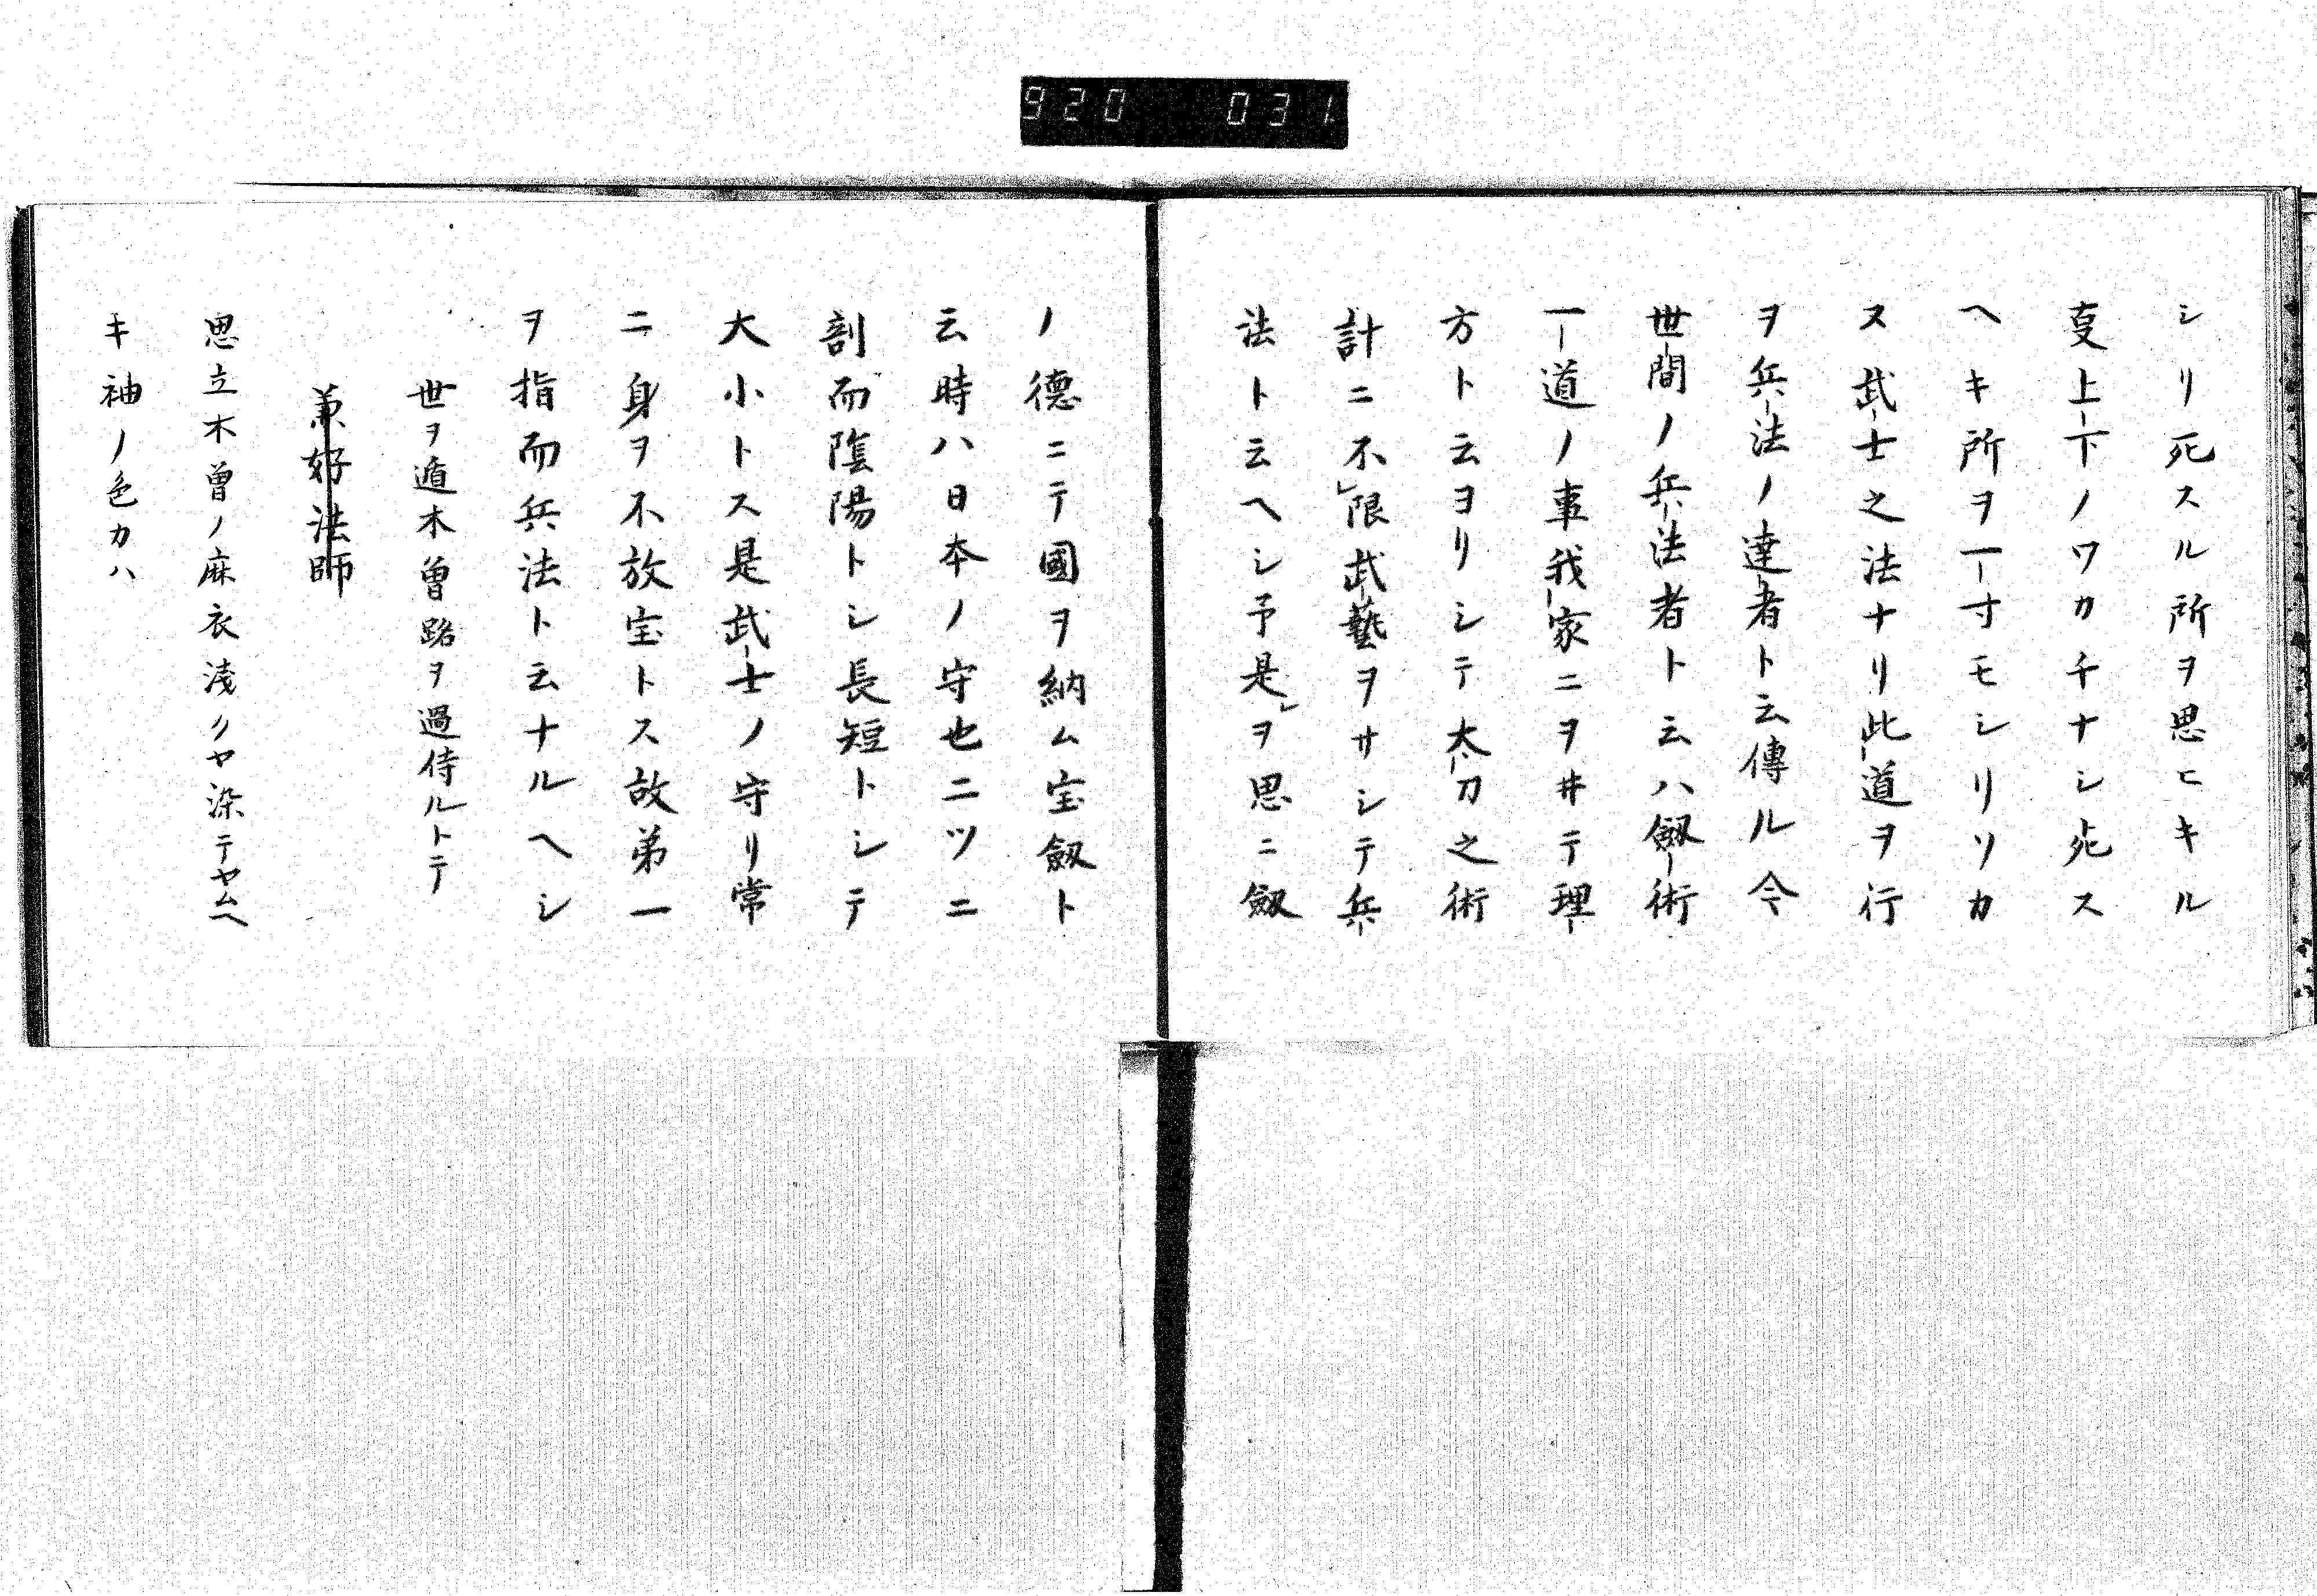 920 031
シリ死スル所ヲ思ヒキル
叓上下ノワカチナシ死ス
ヘキ所ヲ一寸モシリソカ
ス武士之法ナリ此道ヲ行
ヲ兵法ノ達者ト云傳ル今
世間ノ兵法者ト云ハ劔術
一道ノ事我家ニヲヰテ理
方ト云ヨリシテ太刀之術
計ニ不レ限武藝ヲサシテ兵
法ト云ヘシ予是レヲ思ニ劔
ノ德ニテ國ヲ納ム宝劔ト
云時ハ日本ノ守也二ツニ
剖而陰陽トシ長短トシテ
大小トス是武士ノ守リ常
ニ身ヲ不放宝トス故弟一
ヲ指而兵法ト云ナルヘシ
世ヲ遁木曽路ヲ過侍ルトテ
兼好法師
思立木曽ノ麻衣淺クヤ染テヤムヘ
キ袖ノ色カハ